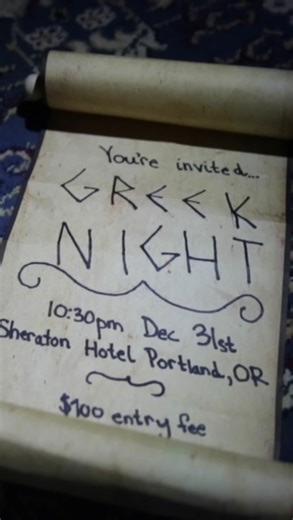 You're invited...
GREEK
NIGHT
10:30pm Dec 31st
Sheraton Hotel Portland, OR
$100 entry fee